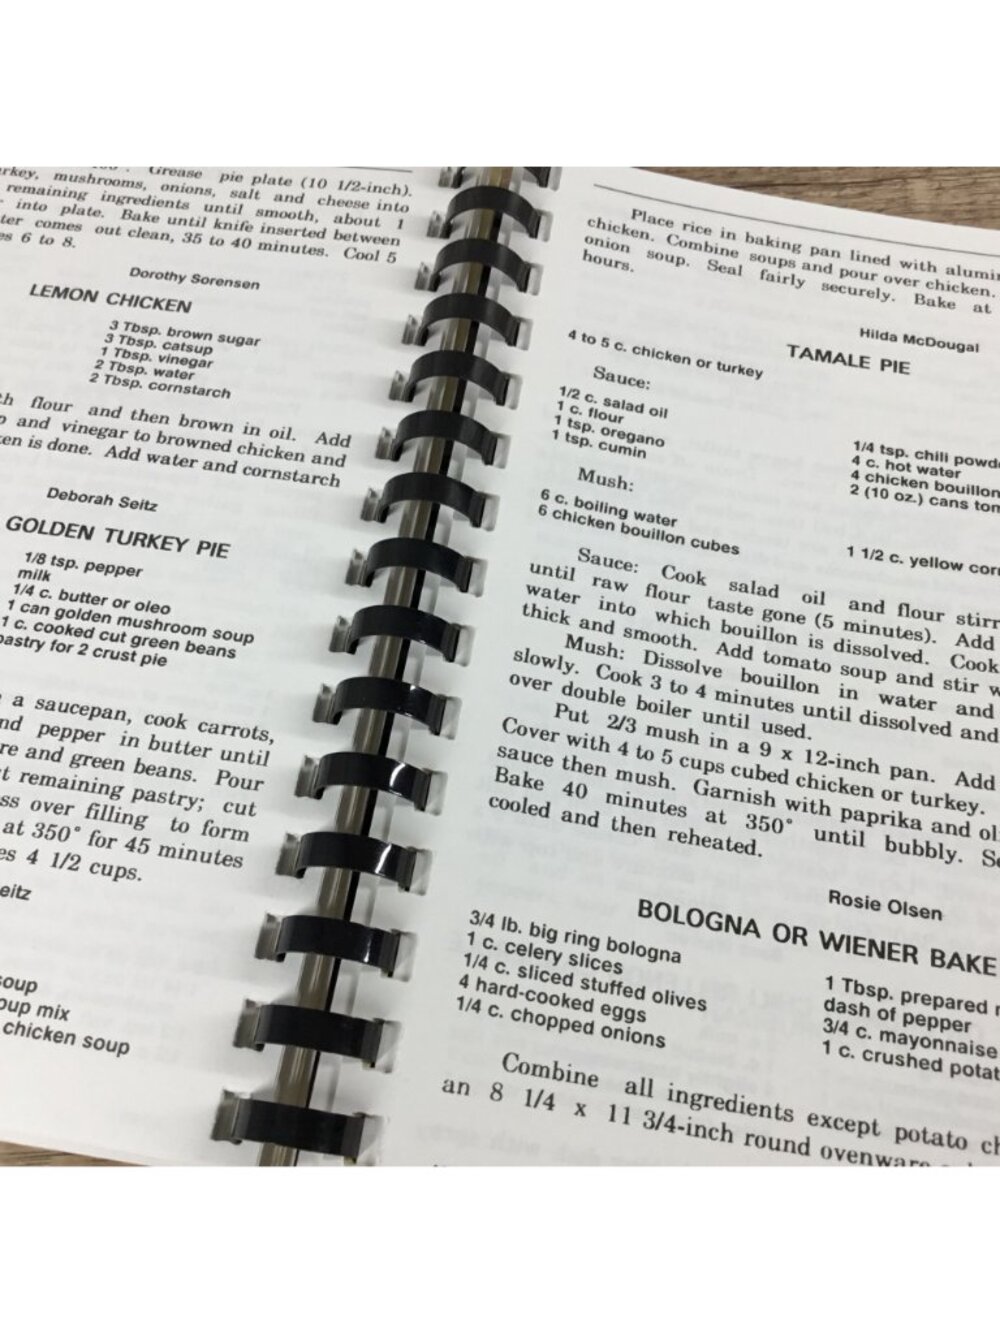 Grease pie plate (10 1/2-inch).
mushrooms, onions, salt and cheese into
remaining ingredients until smooth, about 1
into plate. Bake until knife inserted between
comes out clean, 35 to 40 minutes. Cool 5
6 to 8.
Dorothy Sorensen
LEMON CHICKEN
3 Tbsp. brown sugar
3 Tbsp. catsup
1 Tbsp. vinegar
2 Tbsp. water
2 Tbsp. cornstarch
flour and then brown in oil. Add
and vinegar to browned chicken and
is done. Add water and cornstarch
Deborah Seitz
GOLDEN TURKEY PIE
1/8 tsp. pepper
milk
1/4 c. butter or oleo
1 can golden mushroom soup
1 c. cooked cut green beans
pastry for 2 crust pie
a saucepan, cook carrots,
and pepper in butter until
and green beans. Pour
remaining pastry; cut
over filling to form
at 350° for 45 minutes
4 1/2 cups.
eitz
soup
oup mix
chicken soup
Place rice in baking pan lined with alumin
chicken. Combine soups and pour over chicken.
onion soup. Seal fairly securely. Bake at
hours.
Hilda McDougal
TAMALE PIE
4 to 5 c. chicken or turkey
Sauce:
1/2 c. salad oil
1 c. flour
1 tsp. oregano
1 tsp. cumin
1/4 tsp. chili powde
4 c. hot water
4 chicken bouillon
2 (10 oz.) cans tom
Mush:
6 c. boiling water
6 chicken bouillon cubes
1 1/2 c. yellow corn
Sauce: Cook salad oil and flour stirr
until raw flour taste gone (5 minutes). Add
water into which bouillon is dissolved. Cook
thick and smooth. Add tomato soup and stir w
Mush: Dissolve bouillon in water and
slowly. Cook 3 to 4 minutes until dissolved and
over double boiler until used.
Put 2/3 mush in a 9 x 12-inch pan. Add
Cover with 4 to 5 cups cubed chicken or turkey.
sauce then mush. Garnish with paprika and oli
Bake 40 minutes at 350° until bubbly. Se
cooled and then reheated.
Rosie Olsen
BOLOGNA OR WIENER BAKE
3/4 lb. big ring bologna
1 c. celery slices
1/4 c. sliced stuffed olives
4 hard-cooked eggs
1/4 c. chopped onions
1 Tbsp. prepared
dash of pepper
3/4 c. mayonnaise
1 c. crushed potat
Combine all ingredients except potato ch
an 8 1/4 x 11 3/4-inch round ovenware